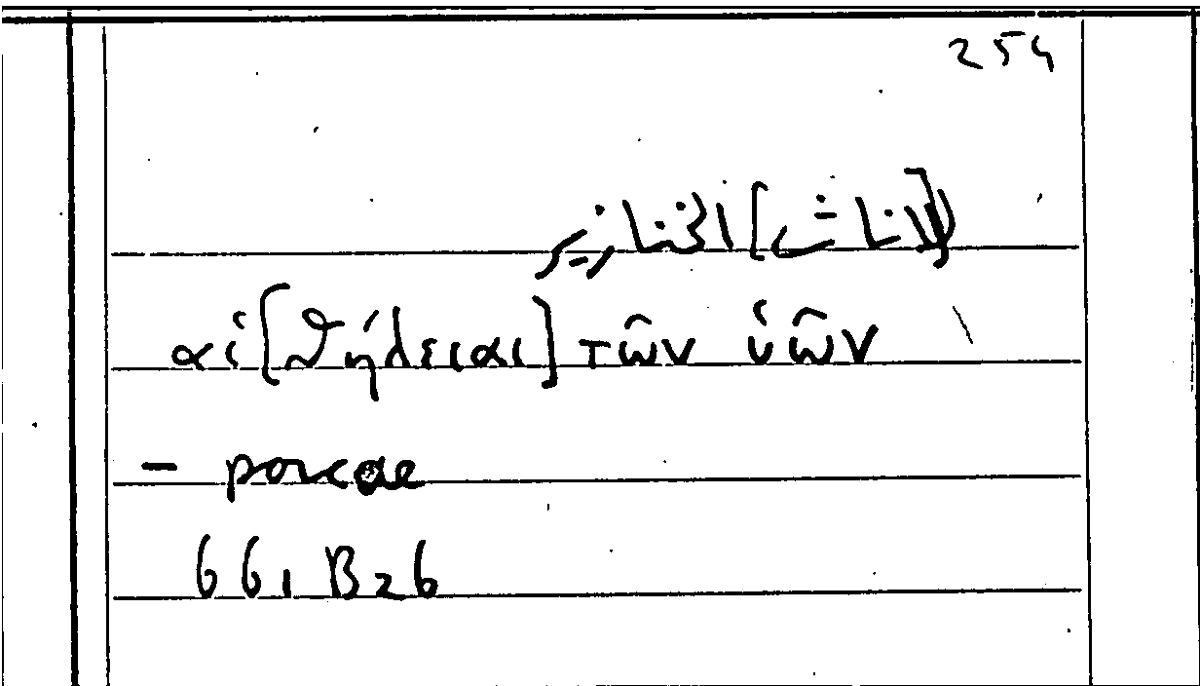 254
[الاناث] الخنازير
αἱ [θήλειαι] τῶν ὑῶν
- porcae
661 B26